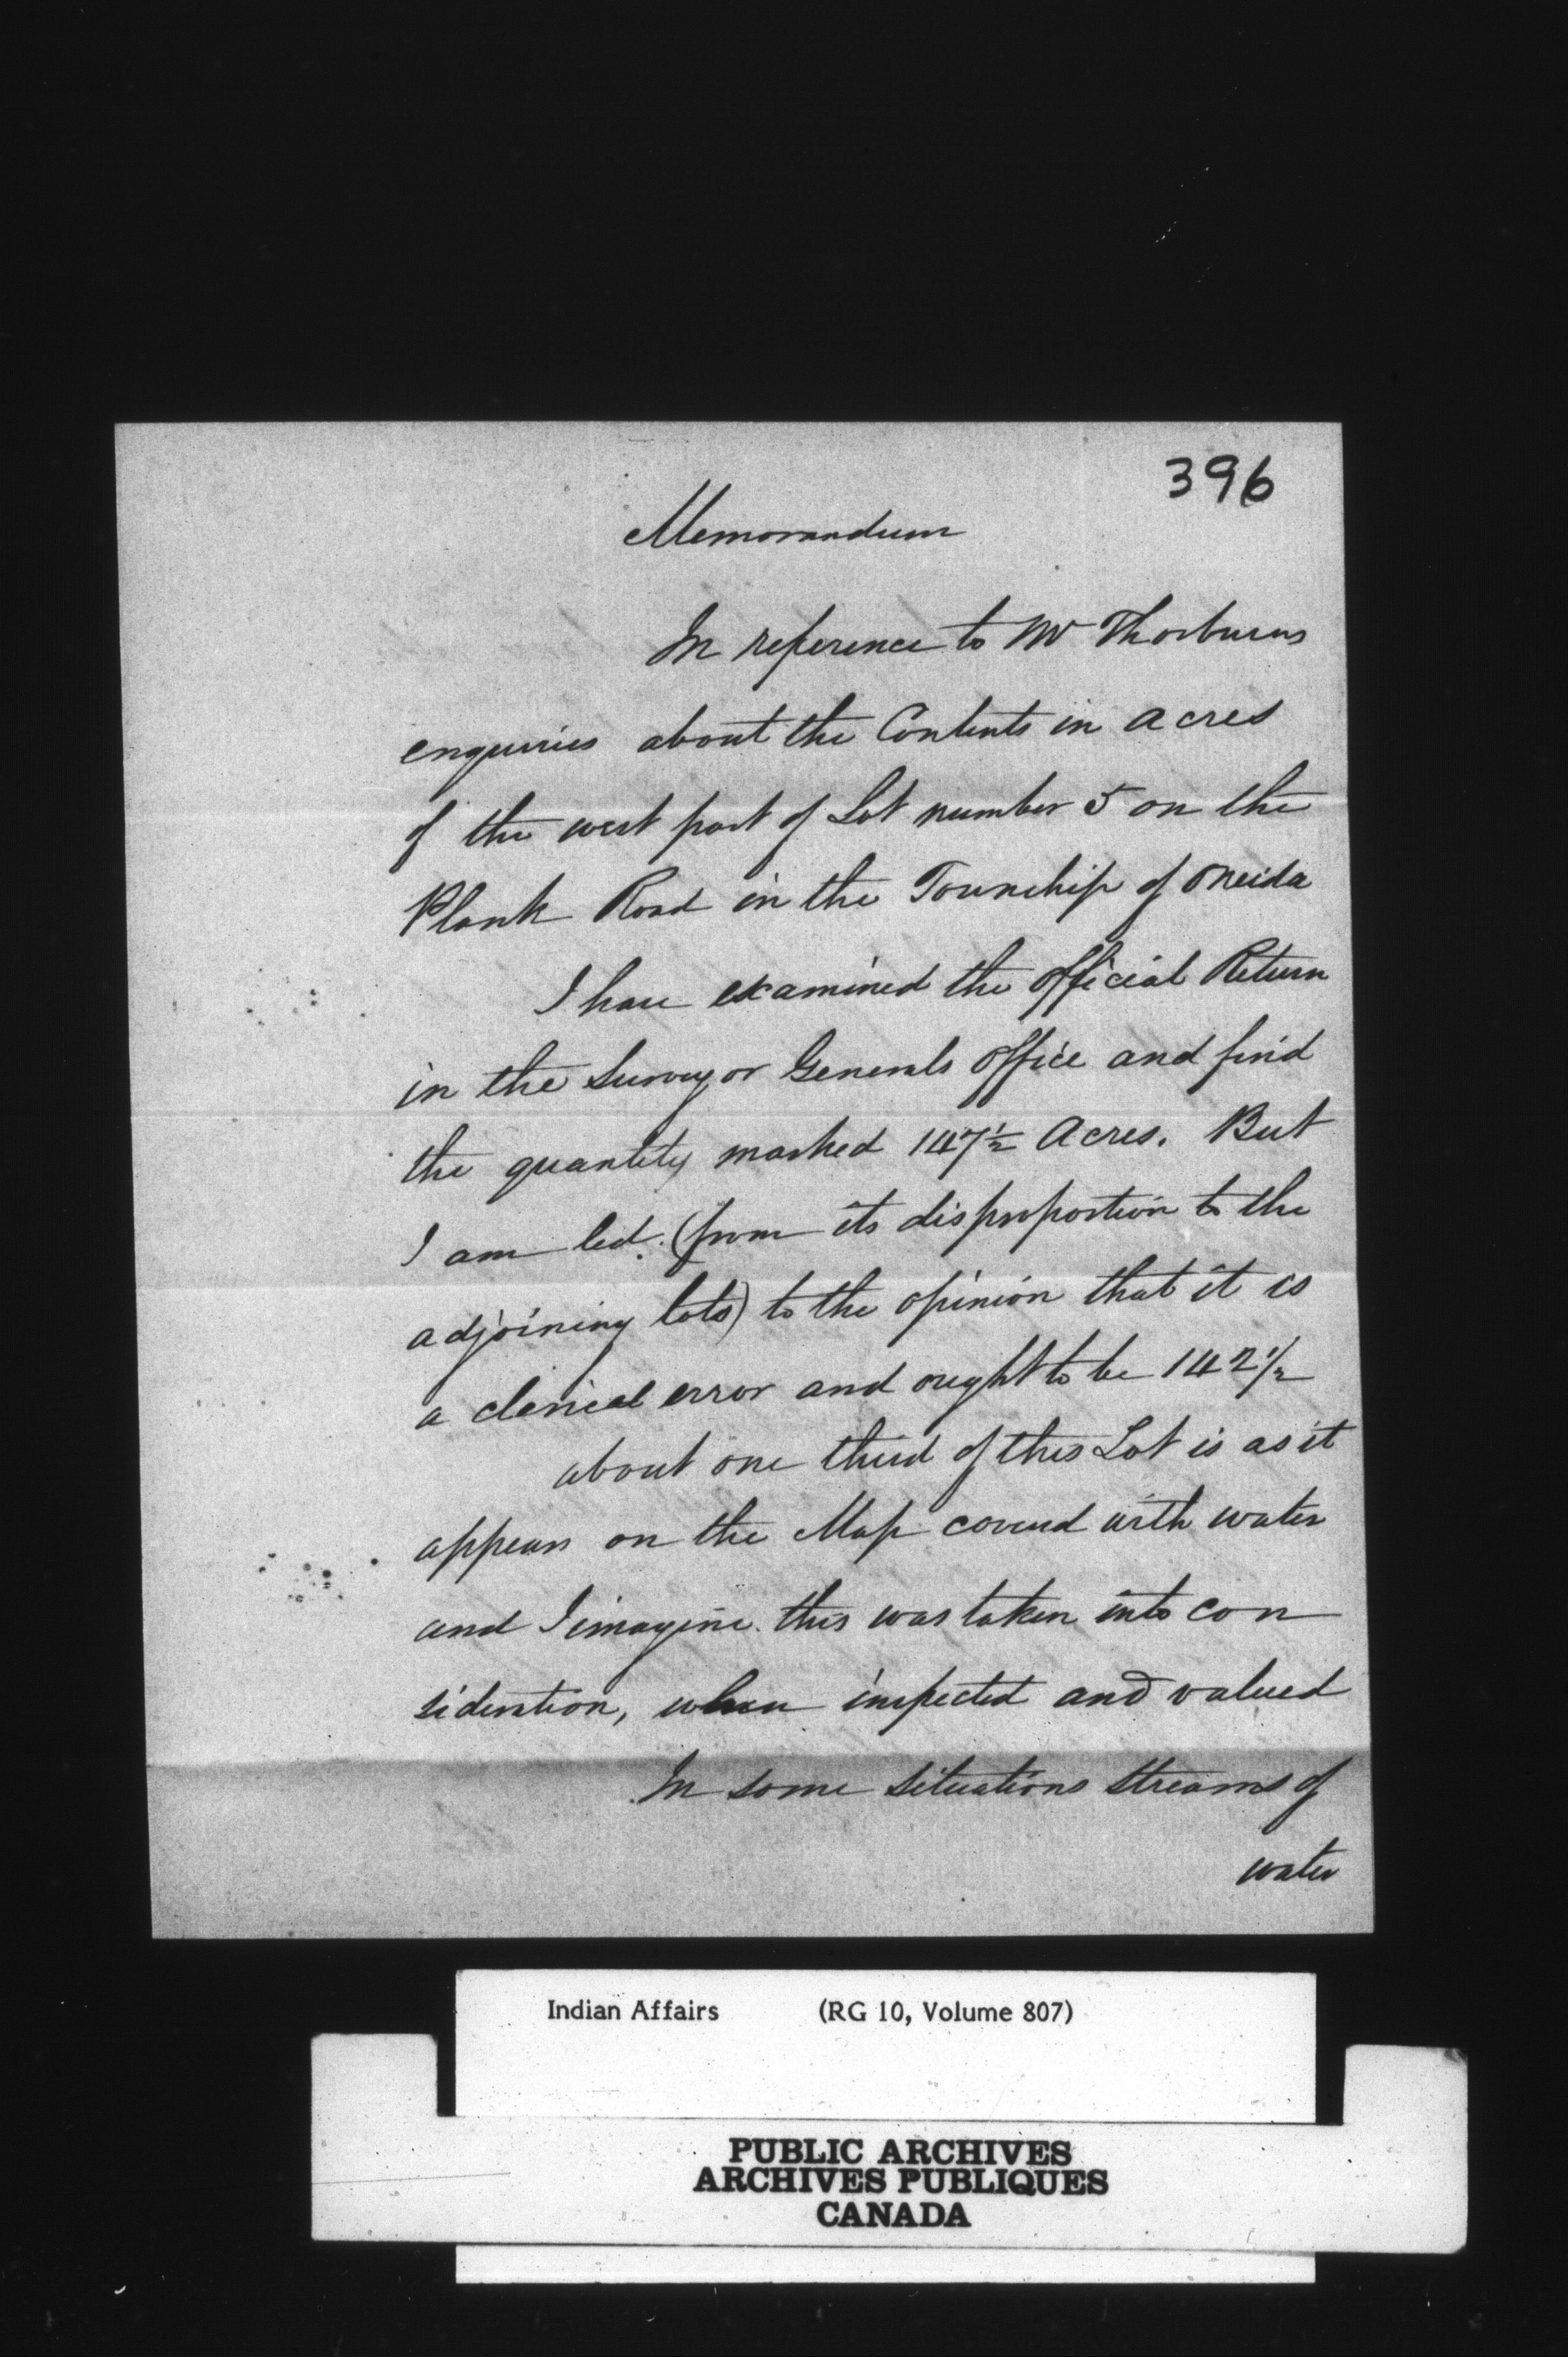 396
Memorandum
In reference to Mr Thorburns
enquiries about the Contents in acres
of the west part of Lot number 5 on the
Plank Road in the Township of Oneida
I have examined the official Return
in the Surveyor Generals office and find
the quantity marked 147½ Acres. But
I am led (from its disproportion to the
adjoining lots) to the opinion that it is
a clerical error and ought to be 142½
about one third of this Lot is as it
appears on the Map covered with water
and I imagine this was taken into con
sideration, when inspected and valued
In some situations streams of
water
Indian Affairs (RG 10, Volume 807)
PUBLIC ARCHIVES
ARCHIVES PUBLIQUES
CANADA